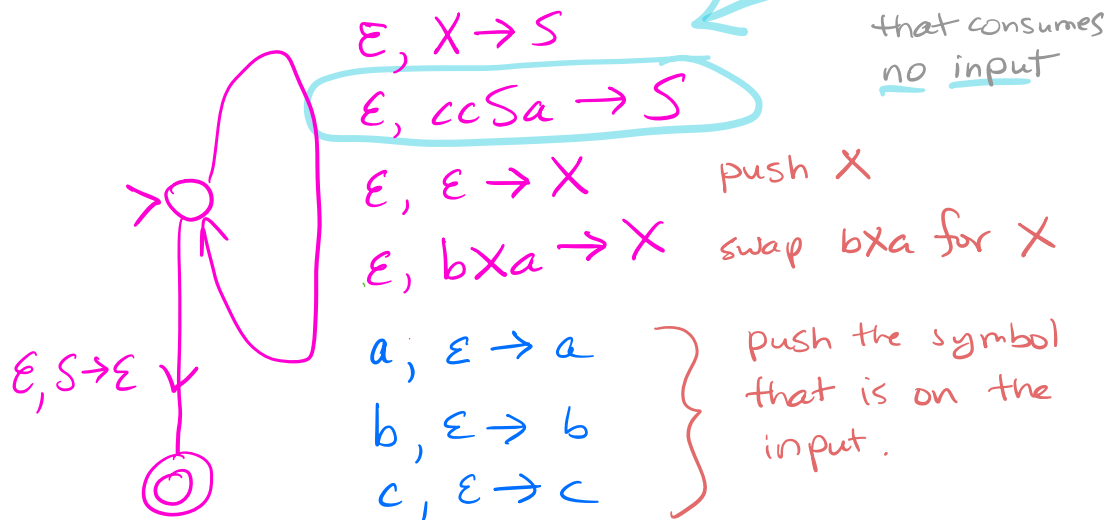 ε, X → S
that consumes
no input
ε, ccSa → S
ε, ε → X push X
ε, bXa → X swap bXa for X
ε, S→ε
a, ε → a
b, ε → b
c, ε → c
push the symbol
that is on the
input.